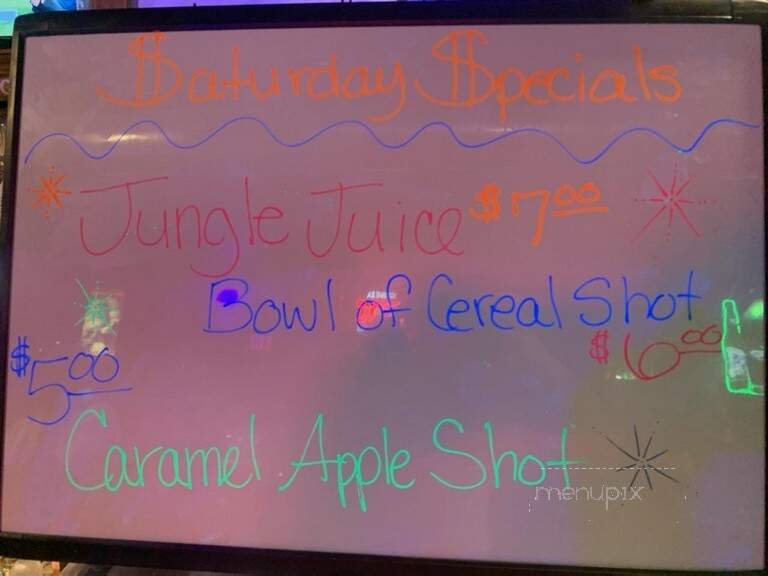 $aturday $pecials
Jungle Juice $7.00
Bowl of Cereal Shot
$6.00
$5.00
Caramel Apple Shot
menupix